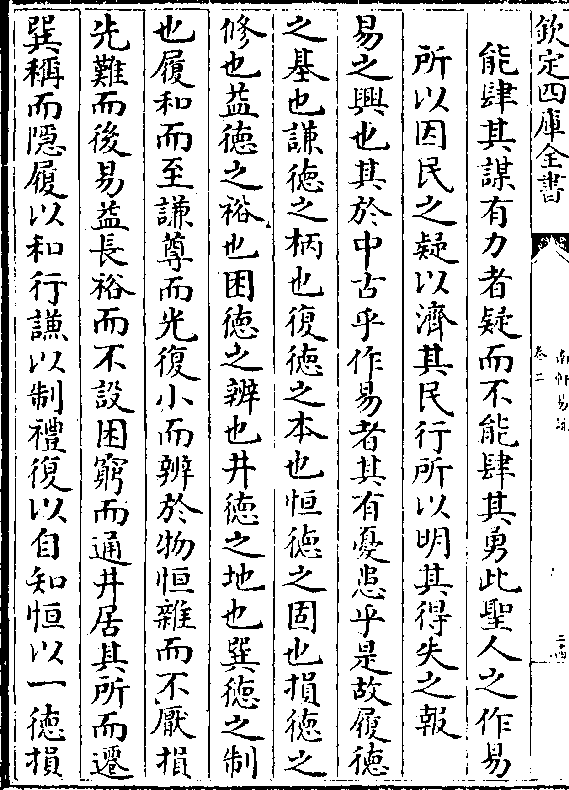 欽定四庫全書
卷二
能肆其謀有力者疑而不能肆其勇此聖人之作易
所以因民之疑以濟其民行所以明其得失之報
易之興也其於中古乎作易者其有憂患乎是故履德
之基也謙德之柄也復德之本也恒德之固也損德之
修也益德之裕也困德之辨也井德之地也巽德之制
也履和而至謙尊而光復小而辨於物恒雜而不厭損
先難而後易益長裕而不設困窮而通井居其所而遷
巽稱而隱履以和行謙以制禮復以自知恒以一德損